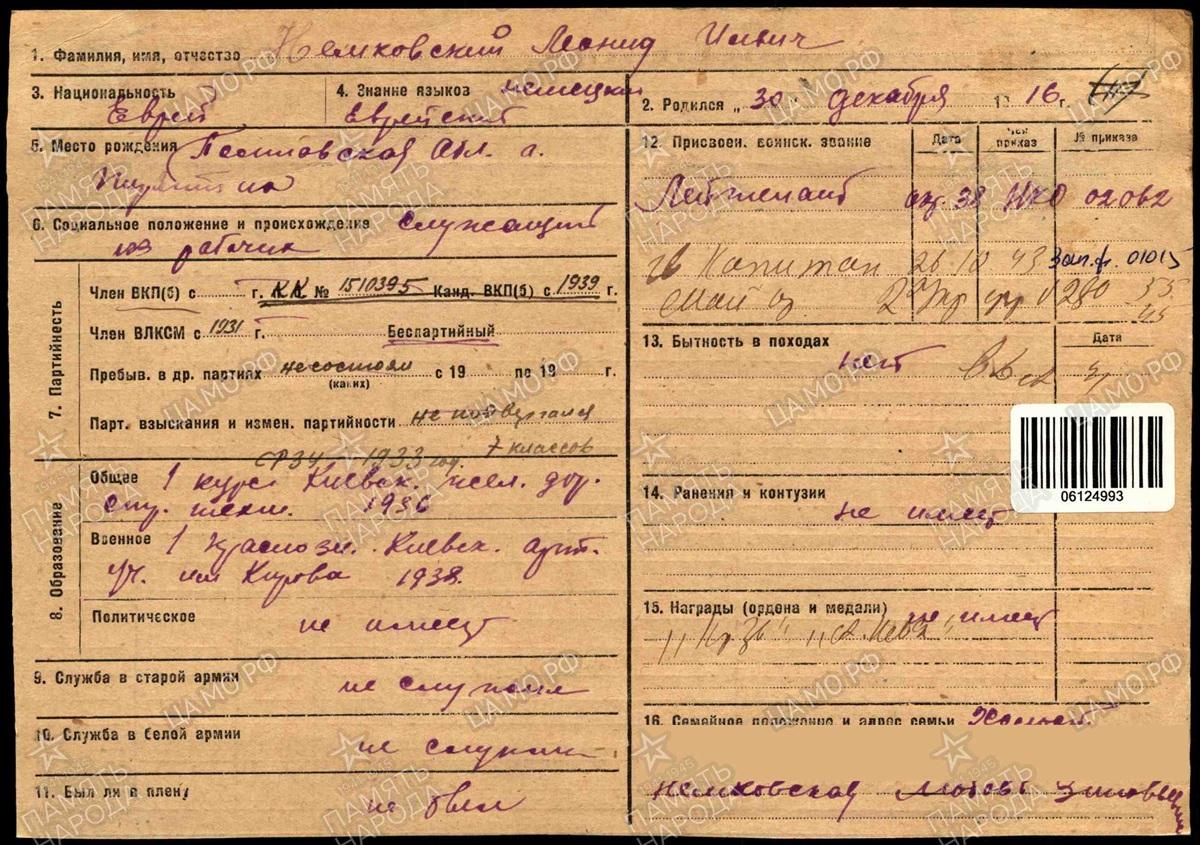 1. Фамилия, имя, отчество Немковский Леонид Ильич
3. Национальность Еврей
4. Знание языков немецкий
Еврейский
2. Родился „30" декабря 1916 г.
5. Место рождения Полтавская обл. г.
Пирятин
6. Социальное положение и происхождение служащий
из рабочих
7. Партийность
Член ВКП(б) с г. КК № 1510395 Канд. ВКП(б) с 1939
Член ВЛКСМ с 1931 г. Беспартийный
Пребыв. в др. партиях не состоял с 19 по 19 г.
(каких)
Парт. взыскания и измен. партийности не подвергался
8. Образование
ФЗУ 1933 год. 7 классов
Общее 1 курс Киевск. жел. дор.
техн. 1936
Военное Краснозн. Киевск. арт.
уч. им Кирова 1938.
Политическое не имеет
9. Служба в старой армии не служил
10. Служба в белой армии не служил
11. Был ли в плену не был
12. Присвоен. воинск. звание Дата Чей приказ № приказа
Лейтенант 38 НКО 02062
гв Капитан 26 10 43 Зап. ф. 01015
Майор
13. Бытность в походах нет Дата
14. Ранения и контузии не имеет
15. Награды (ордена и медали) не имеет
"Кр Зв"
16. Семейное положение и адрес семьи Холост.
Немковская Любовь Зиновьевна
06124993
ЦАМО.РФ
ПАМЯТЬ
НАРОДА